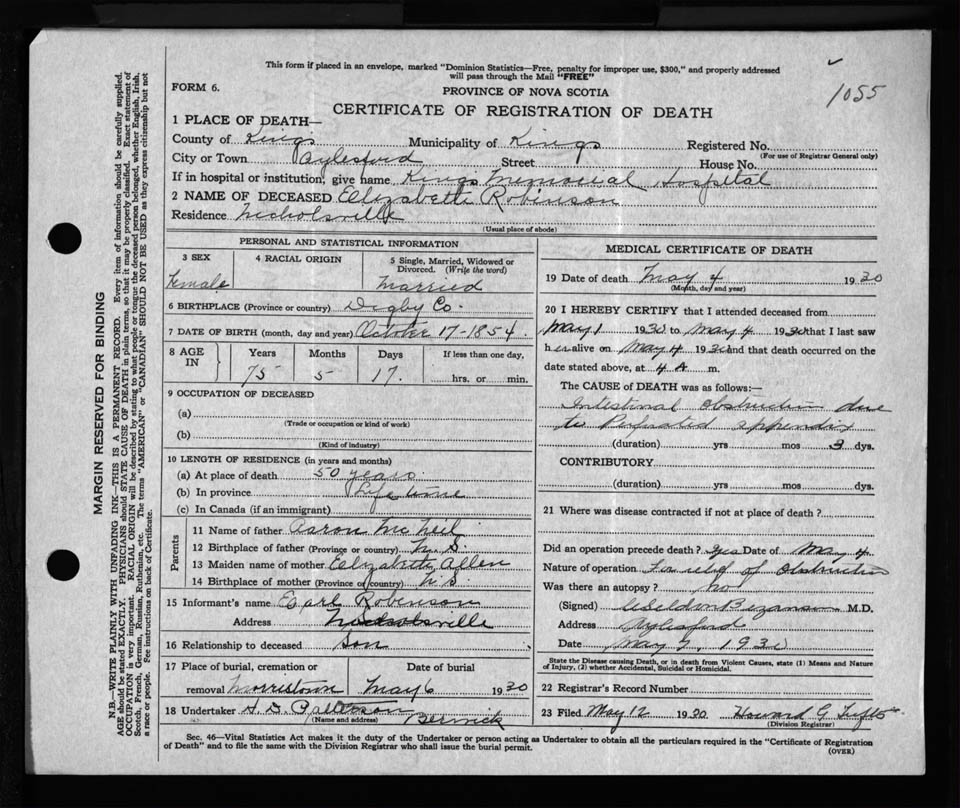 This form if placed in an envelope, marked "Dominion Statistics—Free, penalty for improper use, $300," and properly addressed
will pass through the Mail "FREE"
1055
FORM 6.
PROVINCE OF NOVA SCOTIA
CERTIFICATE OF REGISTRATION OF DEATH
1 PLACE OF DEATH—
County of Kings Municipality of Kings Registered No.
(For use of Registrar General only)
City or Town Aylesford Street House No.
If in hospital or institution, give name Kings Memorial Hospital
2 NAME OF DECEASED Elizabeth Robinson
Residence Nicholsville
(Usual place of abode)
PERSONAL AND STATISTICAL INFORMATION
3 SEX 4 RACIAL ORIGIN 5 Single, Married, Widowed or
Divorced. (Write the word)
Female Married
6 BIRTHPLACE (Province or country) Digby Co.
7 DATE OF BIRTH (month, day and year) October 17-1854.
8 AGE IN Years Months Days If less than one day,
75 5 17. hrs. or min.
9 OCCUPATION OF DECEASED
(a)
(Trade or occupation or kind of work)
(b)
(Kind of industry)
10 LENGTH OF RESIDENCE (in years and months)
(a) At place of death 50 years.
(b) In province Life time
(c) In Canada (if an immigrant)
Parents
11 Name of father Aaron McNeil
12 Birthplace of father (Province or country) N.S.
13 Maiden name of mother Elizabeth Allen
14 Birthplace of mother (Province or country) N S.
15 Informant's name Earl Robinson
Address Nicholsville
16 Relationship to deceased Son
17 Place of burial, cremation or Date of burial
removal Morristown May 6 1930
18 Undertaker H. D. Patterson
(Name and address) Berwick
MEDICAL CERTIFICATE OF DEATH
19 Date of death May 4 1930
(Month, day and year)
20 I HEREBY CERTIFY that I attended deceased from
May 1 1930 to May 4 1930 that I last saw
her alive on May 4 1930 and that death occurred on the
date stated above, at 4 A m.
The CAUSE of DEATH was as follows:—
Intestinal obstruction due
to Perforated appendix
(duration) yrs mos 3 dys.
CONTRIBUTORY
(duration) yrs mos dys.
21 Where was disease contracted if not at place of death?
Did an operation precede death? yes Date of May 4
Nature of operation For relief of Obstruction
Was there an autopsy? no
(Signed) Weldon Bezanson M.D.
Address Aylesford
Date May 7, 1930
State the Disease causing Death, or in death from Violent Causes, state (1) Means and Nature
of Injury, (2) whether Accidental, Suicidal or Homicidal.
22 Registrar's Record Number
23 Filed May 12 1930 Howard G.
(Division Registrar)
Sec. 46—Vital Statistics Act makes it the duty of the Undertaker or person acting as Undertaker to obtain all the particulars required in the "Certificate of Registration
of Death" and to file the same with the Division Registrar who shall issue the burial permit.
(OVER)
MARGIN RESERVED FOR BINDING
N.B.—WRITE PLAINLY WITH UNFADING INK—THIS IS A PERMANENT RECORD. Every item of information should be carefully supplied.
AGE should be stated EXACTLY. PHYSICIANS should STATE CAUSE OF DEATH in plain terms, so that it may be properly classified. Exact statement of
OCCUPATION is very important. RACIAL ORIGIN will be described by stating to what people or tongue the deceased person belonged, whether English, Irish,
Scotch, French, German, Russian, Ruthenian, etc. The terms "AMERICAN" or "CANADIAN" SHOULD NOT BE USED as they express citizenship but not
a race or people. Fee instructions on back of Certificate.